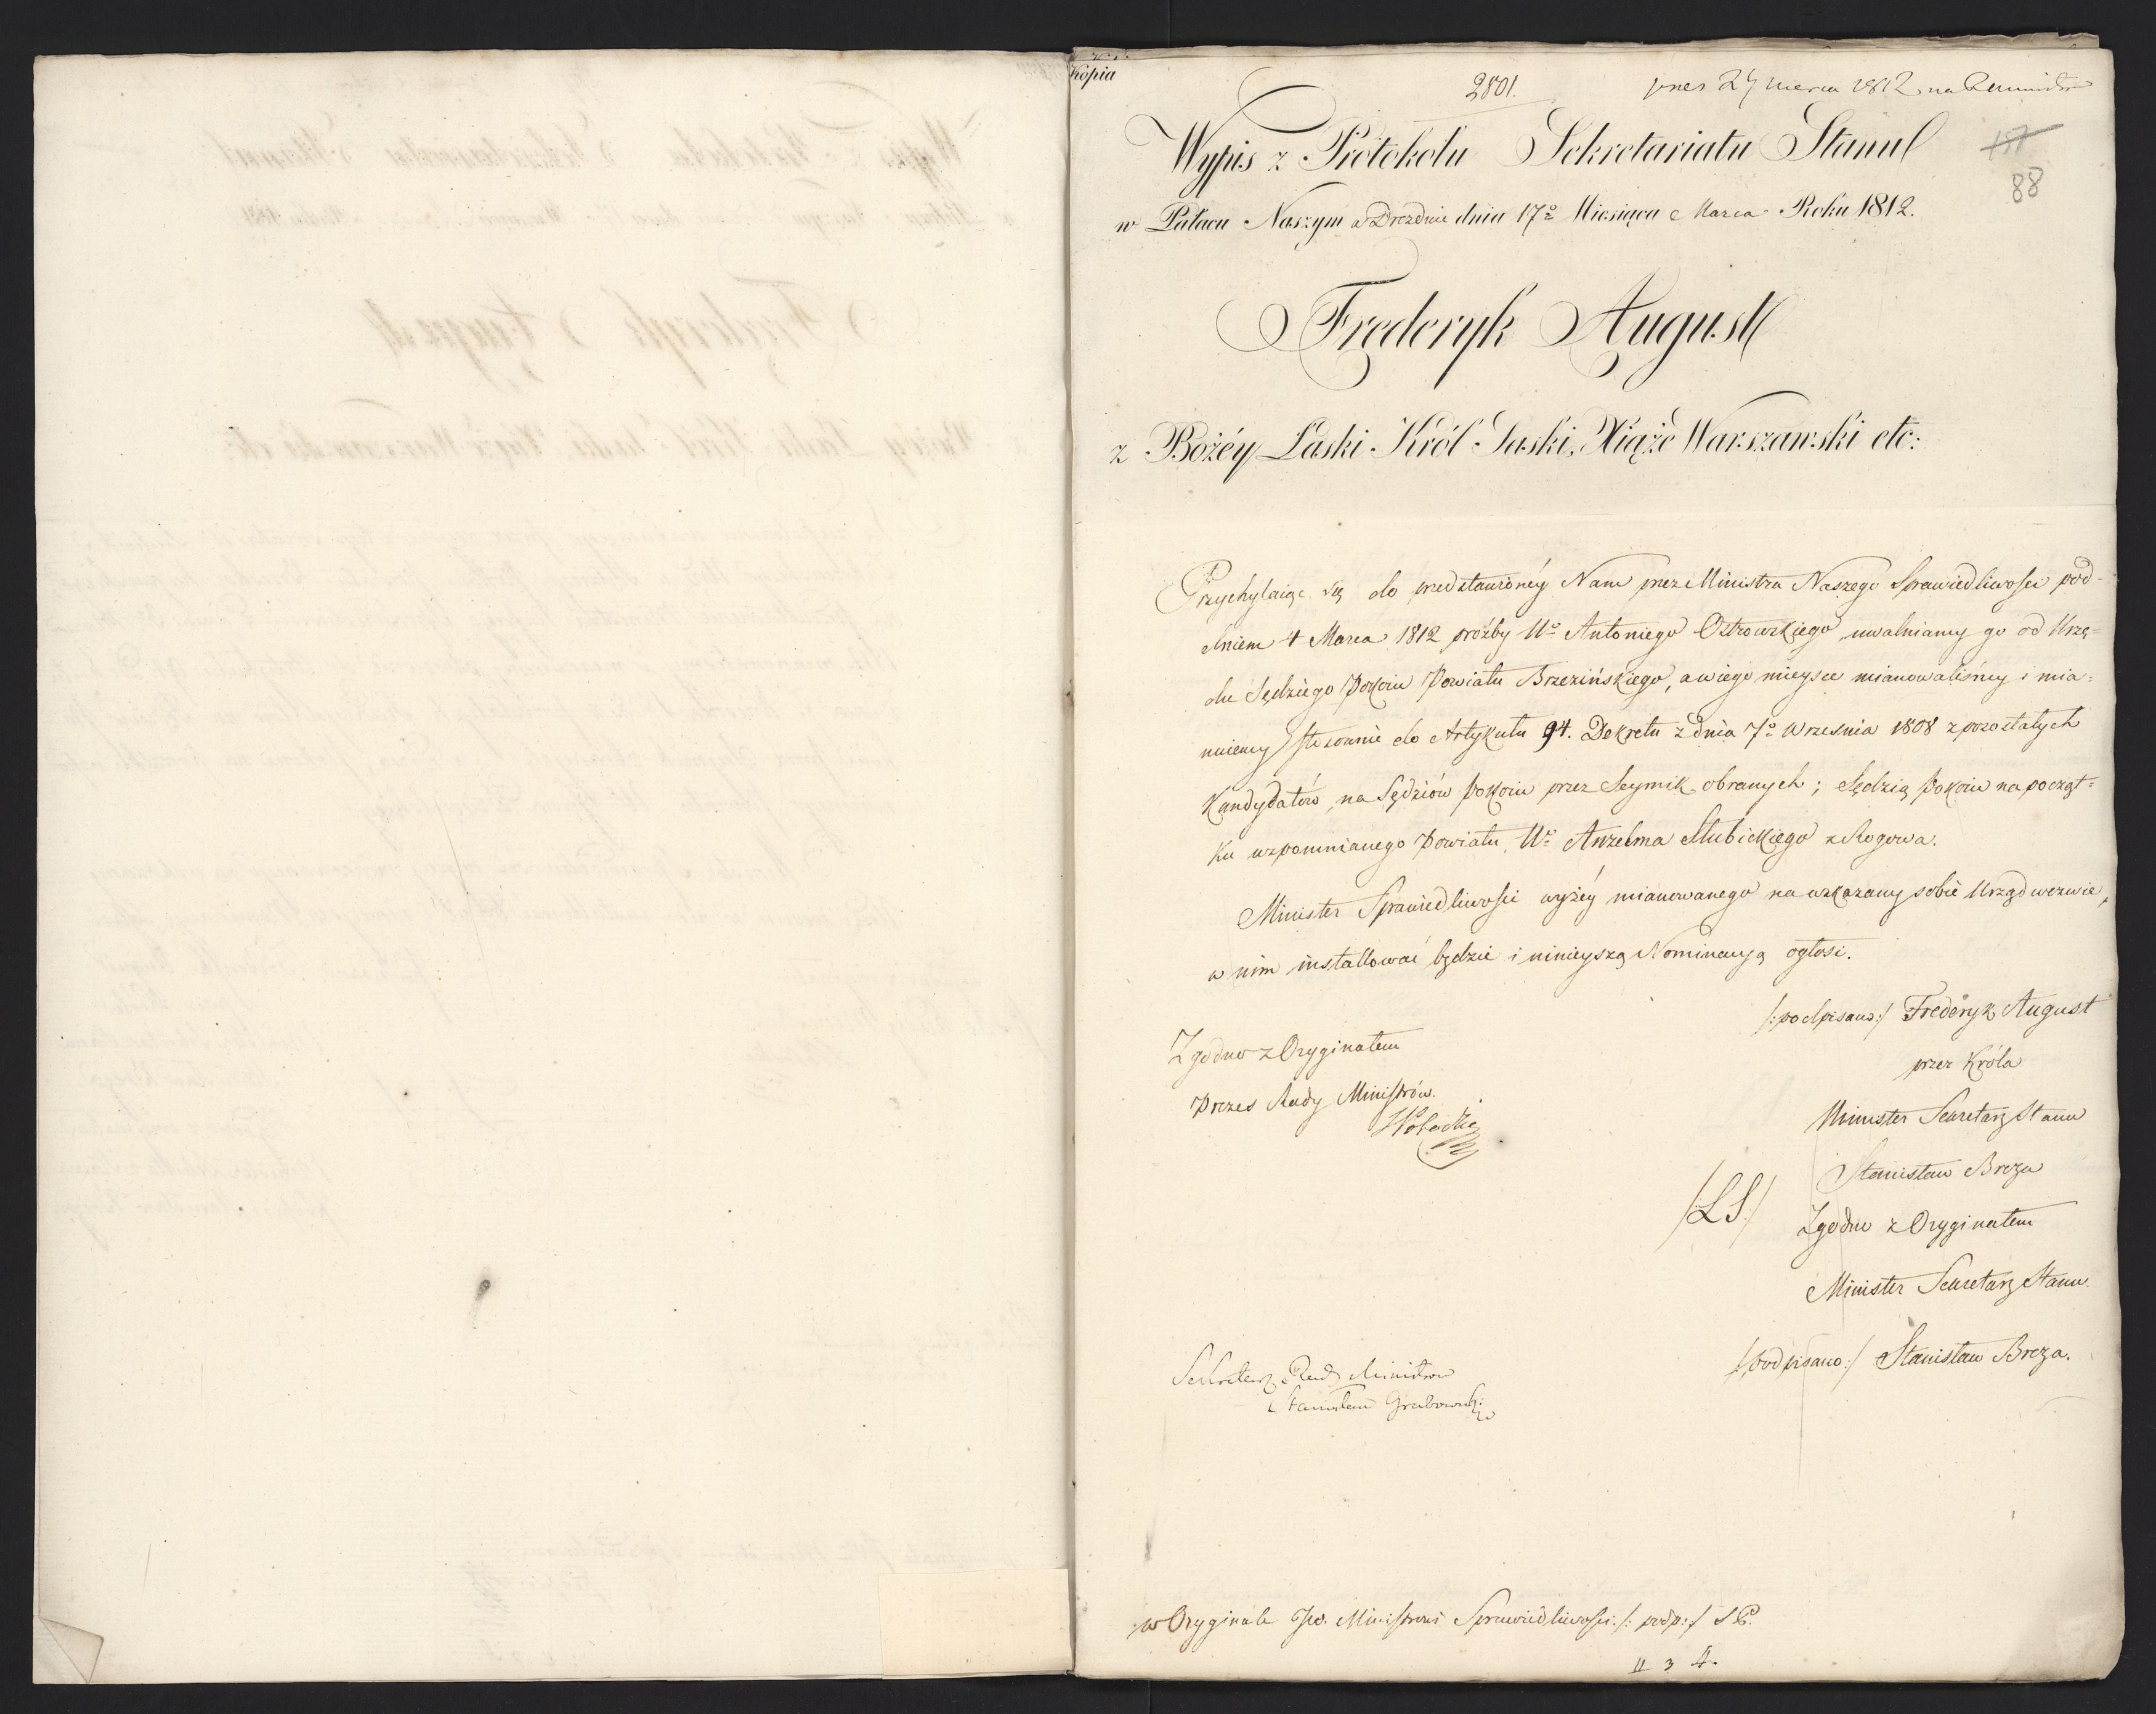 Kopia
2801.
pnes 24 marca 1812 na
157
88
Wypis z Protokołu Sekretariatu Stanu
w Pałacu Naszym w Dreznie dnia 17º Miesiąca Marca Roku 1812.
Frederyk August
z Bożéy Łaski Król Saski, Xiążę Warszawski etc:
Przychylaiąc się do przedstawionéy Nam przez Ministra Naszego Sprawiedliwości pod
dniem 4 Marca 1812 proźby Uº Antoniego Ostrowskiego, uwalniamy go od Urzę=
du Sędziego Pokoiu Powiatu Brzezińskiego, a w iego mieysce mianowaliśmy i mia=
nuiemy stosownie do Artykułu 94. Dekretu z dnia 7º Wrzesnia 1808 z pozostałych
Kandydatów, na Sędziów Pokoiu przez Seymik obranych; Sędzią Pokoiu na począt=
ku wspomnianego Powiatu, Uº Anzelma Słubickiego z Rogowa.
Minister Sprawiedliwości wyżéy mianowanego na wskazany sobie Urząd wezwie,
w nim installować będzie i ninieyszą Nominacyą ogłosi.
/:podpisano:/ Frederyk August
przez Króla
Minister Sekretarz Stanu
Stanisław Breza
/LS:/ Zgodno z Oryginałem
Minister Sekretarz Stanu.
/:podpisano:/ Stanisław Breza.
Zgodno z Oryginałem
Prezes Rady Ministrów.
Sekretarz Rady Ministrow
Stanisław Grabowski
w Oryginale Jw. Ministrowi Sprawiedliwości /: podp:/ S B.